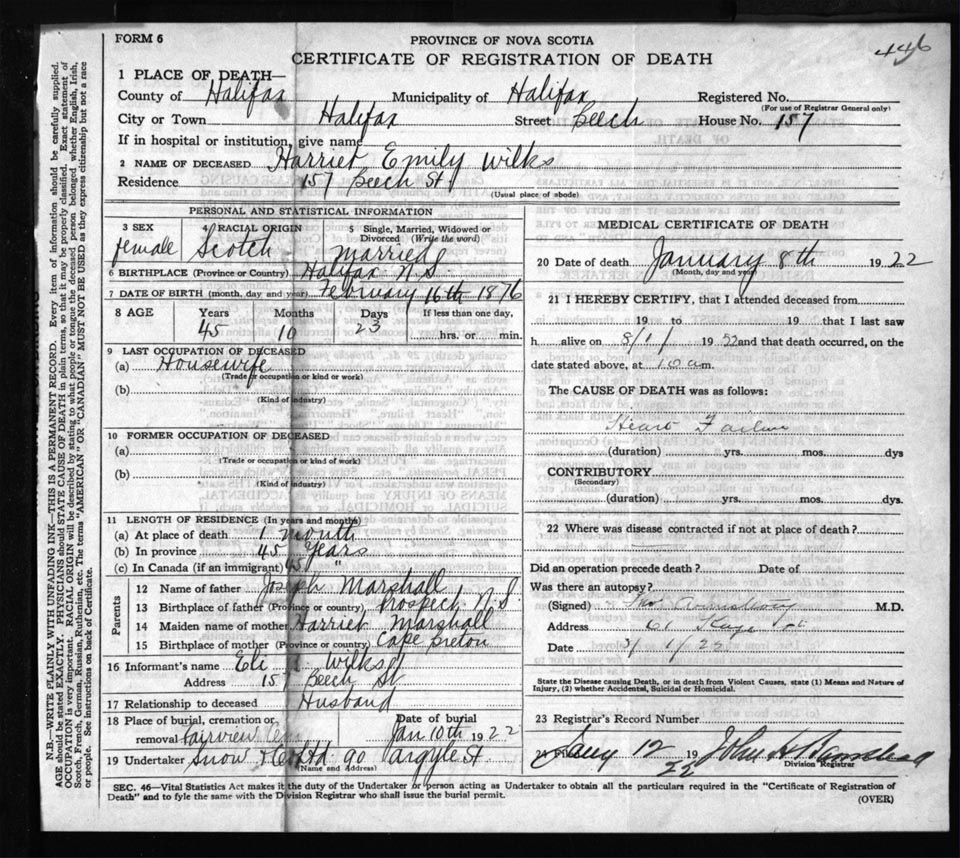 FORM 6
446
PROVINCE OF NOVA SCOTIA
CERTIFICATE OF REGISTRATION OF DEATH
1 PLACE OF DEATH—
County of Halifax Municipality of Halifax Registered No.
(For use of Registrar General only)
City or Town Halifax Street Beech House No. 157
If in hospital or institution, give name
2 NAME OF DECEASED Harriet Emily Wilks
Residence 157 Beech St
(Usual place of abode)
PERSONAL AND STATISTICAL INFORMATION
3 SEX 4 RACIAL ORIGIN 5 Single, Married, Widowed or
Divorced (Write the word)
female Scotch Married
6 BIRTHPLACE (Province or Country) Halifax N.S.
7 DATE OF BIRTH (month, day and year) February 16th 1876
8 AGE Years Months Days If less than one day,
45 10 23 hrs. or min.
9 LAST OCCUPATION OF DECEASED
(a) Housewife
(Trade or occupation or kind or work)
(b)
(Kind of industry)
10 FORMER OCCUPATION OF DECEASED
(a)
(Trade or occupation or kind or work)
(b)
(Kind of industry)
11 LENGTH OF RESIDENCE (In years and months)
(a) At place of death 1 month
(b) In province 45 Years
(c) In Canada (if an immigrant) 45 "
Parents
12 Name of father Joseph Marshall
13 Birthplace of father (Province or country) Prospect N S
14 Maiden name of mother Harriet Marshall
15 Birthplace of mother (Province or country) Cape Breton
16 Informant's name Eli Wilks
Address 157 Beech St
17 Relationship to deceased Husband
18 Place of burial, cremation or Date of burial
removal Fairview Jan 10th 1922
19 Undertaker Snow & Co Ltd 90 Argyle St.
(Name and Address)
MEDICAL CERTIFICATE OF DEATH
20 Date of death January 8th 1922
(Month, day and year)
21 I HEREBY CERTIFY, that I attended deceased from
19 to 19 that I last saw
h alive on 8/1/ 1922 and that death occurred, on the
date stated above, at 10 a m.
The CAUSE OF DEATH was as follows:
Heart Failure
(duration) yrs. mos. dys
CONTRIBUTORY
(Secondary)
(duration) yrs. mos. dys.
22 Where was disease contracted if not at place of death?
Did an operation precede death? Date of
Was there an autopsy?
(Signed) M.D.
Address
Date
State the Disease causing Death, or in death from Violent Causes, state (1) Means and Nature of
Injury, (2) whether Accidental, Suicidal or Homicidal.
23 Registrar's Record Number
24 Jany 12 1922 John H Barnstead
Division Registrar
SEC. 46—Vital Statistics Act makes it the duty of the Undertaker or person acting as Undertaker to obtain all the particulars required in the "Certificate of Registration of
Death" and to fyle the same with the Division Registrar who shall issue the burial permit.
(OVER)
N.B.—WRITE PLAINLY WITH UNFADING INK—THIS IS A PERMANENT RECORD. Every item of information should be carefully supplied.
AGE should be stated EXACTLY. PHYSICIANS should STATE CAUSE OF DEATH in plain terms, so that it may be properly classified. Exact statement of
OCCUPATION is very important. RACIAL ORIGIN will be described by stating to what people or tongue the deceased person belonged whether English, Irish,
Scotch, French, German, Russian, Ruthenian, etc. The terms "AMERICAN" OR "CANADIAN" MUST NOT BE USED as they express citizenship but not a race
or people. See instructions on back of Certificate.